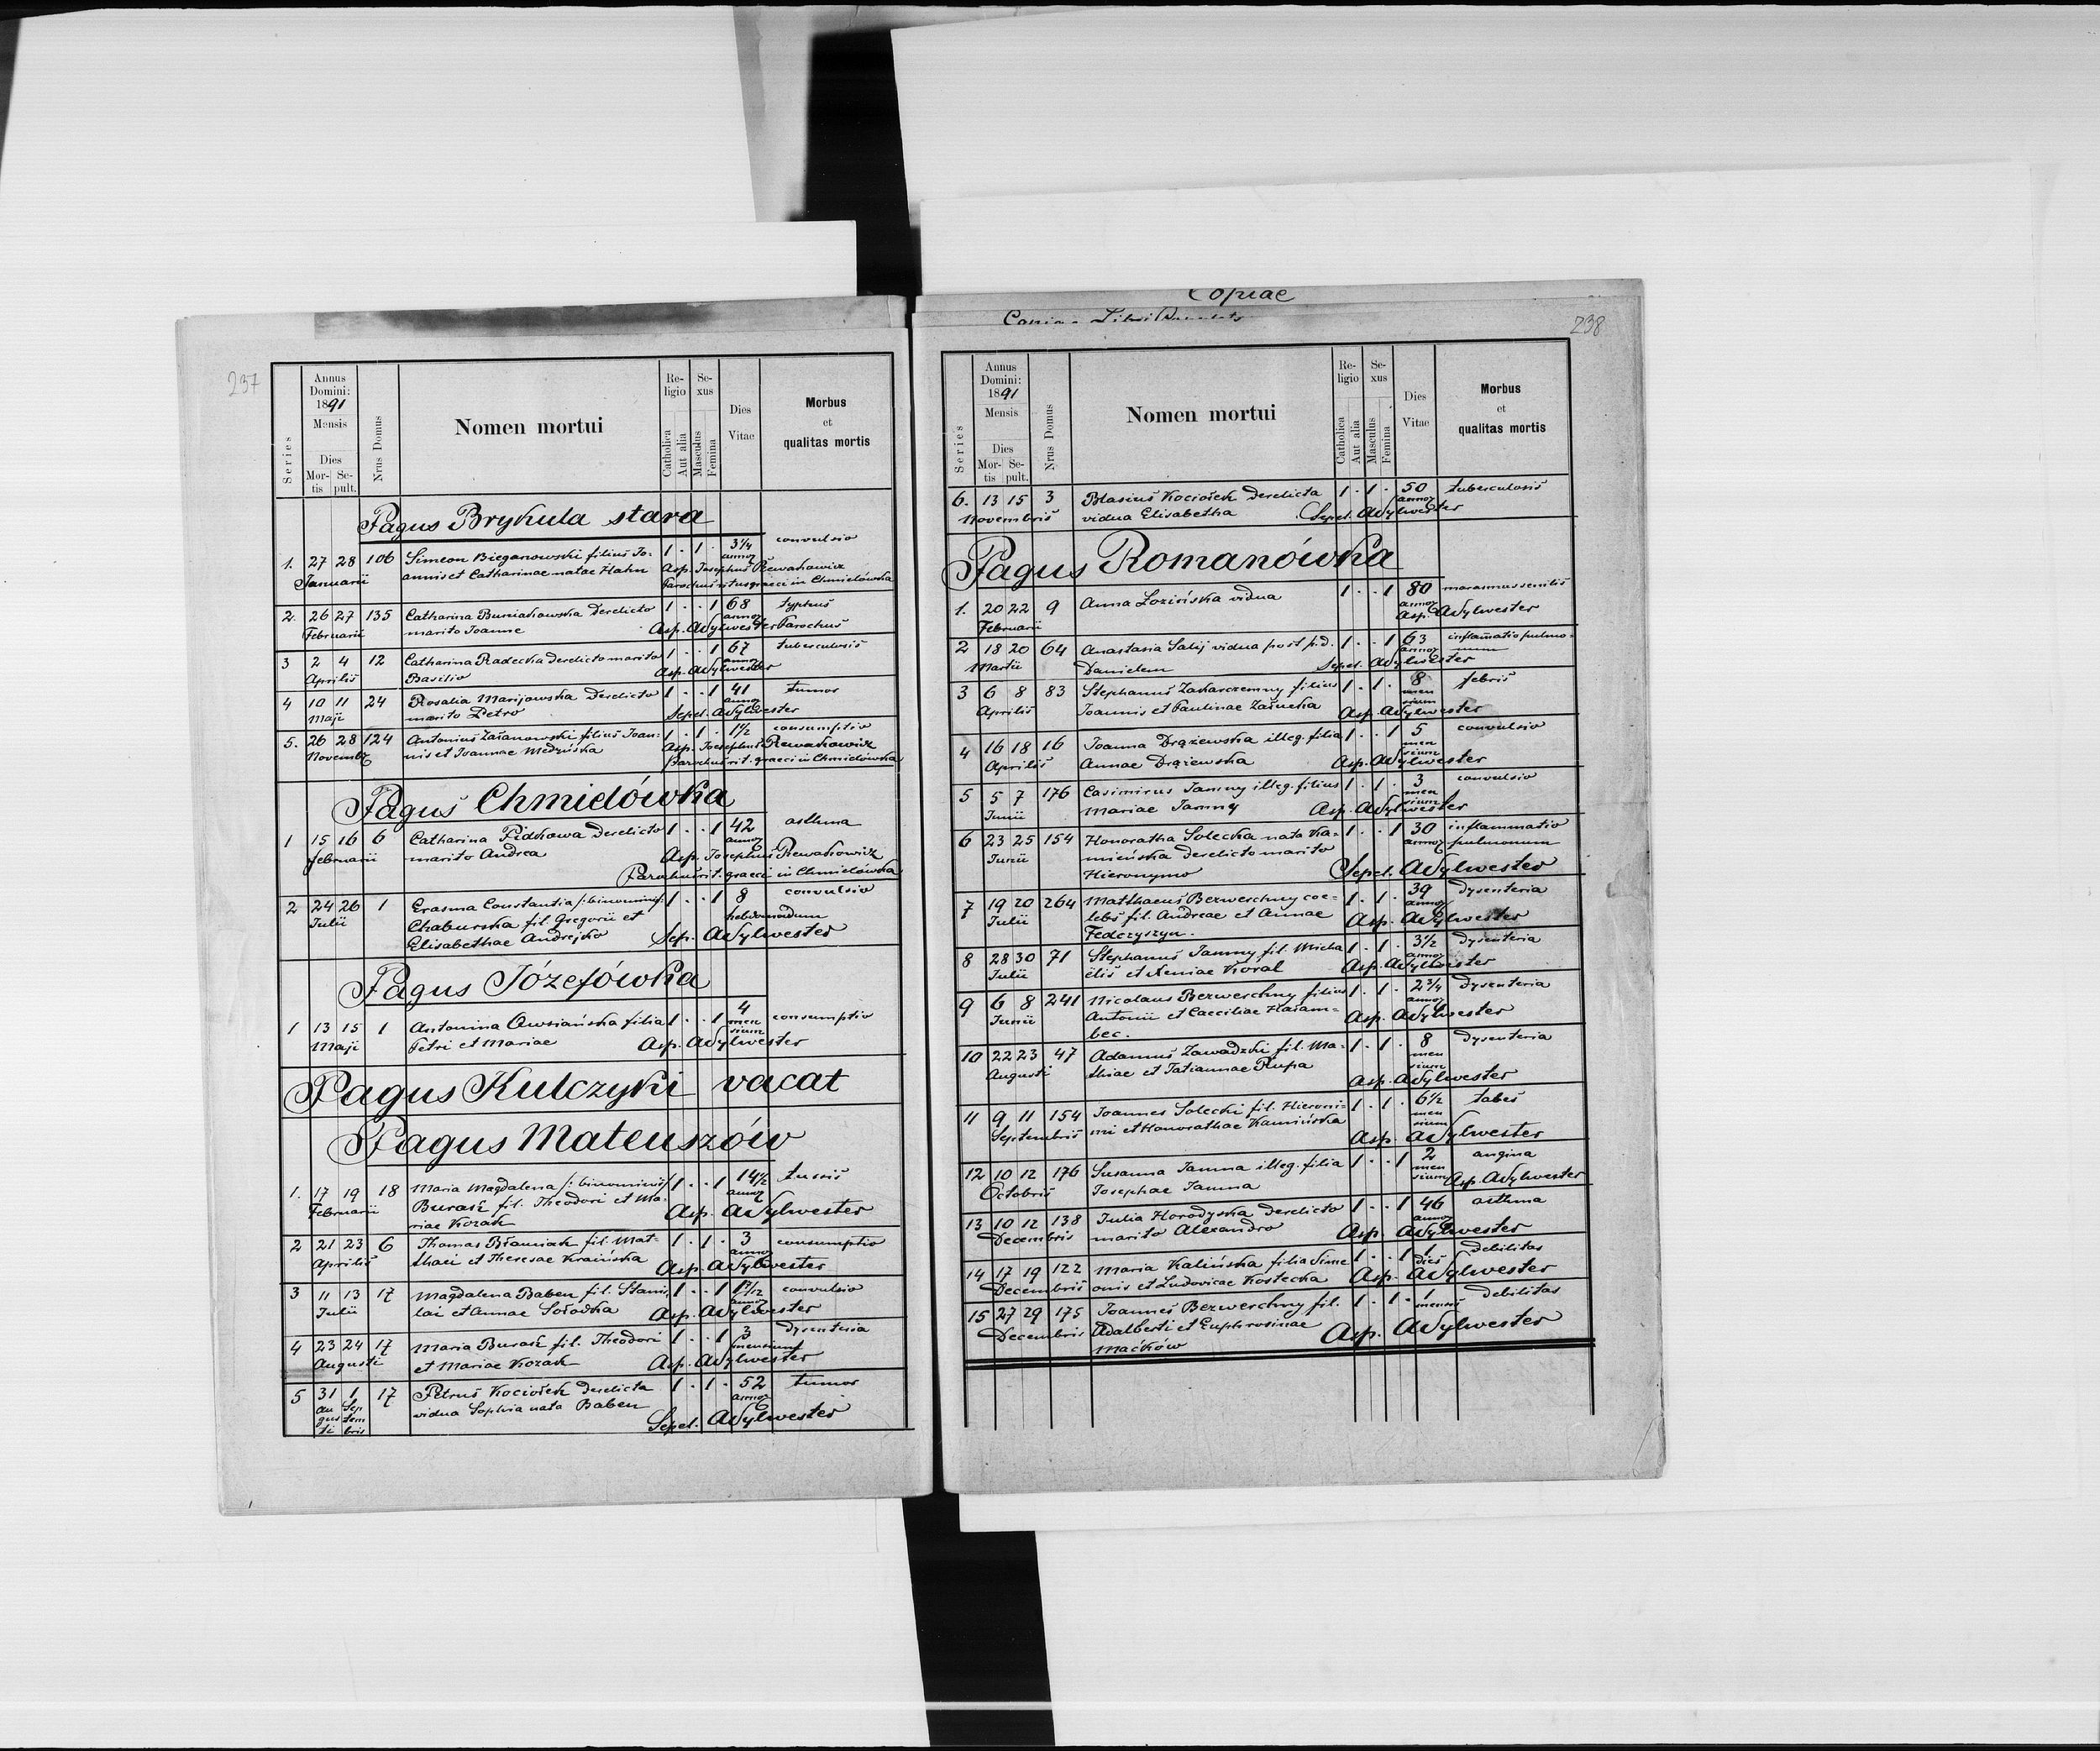 237
Series
Annus Domini: 1891
Mensis
Dies
Mortis
Sepult.
Nrus Domus
Nomen mortui
Religio
Catholica
Aut alia
Sexus
Masculus
Femina
Dies Vitae
Morbus et qualitas mortis
Pagus Brykula stara
1. 27 28 106 Simeon Bieganowski filius Jo- 1 . 1 . 3 1/4 convulsio
Januarii annis et Catharinae natae Hahn annor Asp. Josephus Rewakowicz
Parochus ritus graeci in Chmielówka
2. 26 27 135 Catharina Buniakowska derelicto 1 . . 1 68 typhus
Februarii marito Joanne annor Asp. A Sylwester Parochus
3 2 4 12 Catharina Radecka derelicto marito 1 . . 1 67 tuberculosis
Aprilis Basilio annor Asp. A Sylwester
4 10 11 24 Rosalia Marijowska derelicto 1 . . 1 41 tumor
Maji marito Petro annor Sepel. A Sylwester
5. 26 28 124 Antonius Załanowski filius Joan- 1 . 1 . 1 1/2 consumptio
Novembr nis et Joannae Medyńska Asp. Josephus Rewakowicz
Parochus rit. graeci in Chmielówka
Pagus Chmielówka
1 15 16 6 Catharina Fidkowa derelicto 1 . . 1 42 asthma
Februarii marito Andrea annor Asp. Josephus Rewakowicz
Parochus rit. graeci in Chmielówka
2 24 26 1 Erasma Constantia /: binominis :/ 1 . . 1 8 convulsio
Julii Chaburska fil. Gregorii et hebdomadum
Elisabethae Andrejko Sep. A Sylwester
Pagus Józefówka
1 13 15 1 Antonina Owsiańska filia 1 . . 1 4 mensium consumptio
Maji Petri et Mariae Asp. A Sylwester
Pagus Kulczyki vacat
Pagus Mateuszów
1. 17 19 18 Maria Magdalena /: binominis :/ 1 . . 1 14 1/2 tussis
Februarii Burak fil. Theodori et Ma- annor
riae Kozak Asp. A Sylwester
2 21 23 6 Thomas Błauciak fil. Mat- 1 . 1 . 3 consumptio
Aprilis thaei et Theresae Kraińska annor Asp. A Sylwester
3 11 13 17 Magdalena Baben fil. Stanis- 1 . . 1 convulsio
Julii lai et Annae Sołodka annor Asp. A Sylwester
4 23 24 17 Maria Burak fil. Theodori 1 . . 1 3 dysenteria
Augusti et Mariae Kozak mensium Asp. A Sylwester
5 31 1 17 Petrus Kociołek derelicta 1 . 1 . 52 tumor
Augusti Septembris vidua Sophia nata Baben annor
Sepel. A Sylwester
Copiae
238
Series
Annus Domini: 1891
Mensis
Dies
Mortis
Sepult.
Nrus Domus
Nomen mortui
Religio
Catholica
Aut alia
Sexus
Masculus
Femina
Dies Vitae
Morbus et qualitas mortis
6. 13 15 3 Blasius Kociołek derelicta 1 . 1 . 50 tuberculosis
Novembris vidua Elisabetha annor Sepel. A Sylwester
Pagus Romanówka
1. 20 22 9 Anna Łozińska vidua 1 . . 1 80 marasmus senilis
Februarii annor Asp. A Sylwester
2 18 20 64 Anastasia Salij vidua post p.d. 1 . . 1 63 inflamatio pulmo-
Martii Danielem annor num
Sepel. A Sylwester
3 6 8 83 Stephanus Zakarczemny filius 1 . 1 . 8 mensium febris
Aprilis Joannis et Paulinae Załucka Asp. A Sylwester
4 16 18 16 Joanna Drążewska illeg. filia 1 . . 1 5 mensium convulsio
Aprilis Annae Drążewska Asp. A Sylwester
5 5 7 176 Casimirus Jamny illeg. filius 1 . 1 . 3 mensium convulsio
Junii Mariae Jamny Asp. A Sylwester
6 23 25 154 Honoratha Solecka nata Ka- 1 . . 1 30 inflammatio
Junii mieńska derelicto marito annor pulmonum
Hieronymo Sepel. A Sylwester
7 19 20 264 Matthaeus Bezwerchny coe- 1 . 1 . 39 dysenteria
Julii lebs fil. Andreae et Annae annor Asp. A Sylwester
Fedczyszyn.
8 28 30 71 Stephanus Jamny fil. Micha 1 . 1 . 3 1/2 dysenteria
Julii elis et Xeniae Koral annor Asp. A Sylwester
9 6 8 241 Nicolaus Bezwerchny filius 1 . 1 . 2 3/4 dysenteria
Junii Antonii et Caeciliae Haram- annor Asp. A Sylwester
bec.
10 22 23 47 Adamus Zawadzki fil. Ma- 1 . 1 . 8 mensium dysenteria
Augusti thiae et Tatiannae Rupa Asp. A Sylwester
11 9 11 154 Joannes Solecki fil. Hieroni- 1 . 1 . 6 1/2 mensium tabes
Septembris mi et Honorathae Kamińska Asp. A Sylwester
12 10 12 176 Susanna Jamna illeg. filia 1 . . 1 2 mensium angina
Octobris Josephae Jamna Asp. A Sylwester
13 10 12 138 Julia Horodyska derelicto 1 . . 1 46 asthma
Decembris marito Alexandro annor Asp. A Sylwester
14 17 19 122 Maria Kalińska filia Sime 1 . . 1 1 dies debilitas
Decembris onis et Ludovicae Kostecka Asp. A Sylwester
15 27 29 175 Joannes Bezwerchny fil. 1 . 1 . 1 mensis debilitas
Decembris Adalberti et Euphrosinae Asp. A Sylwester
Maćków